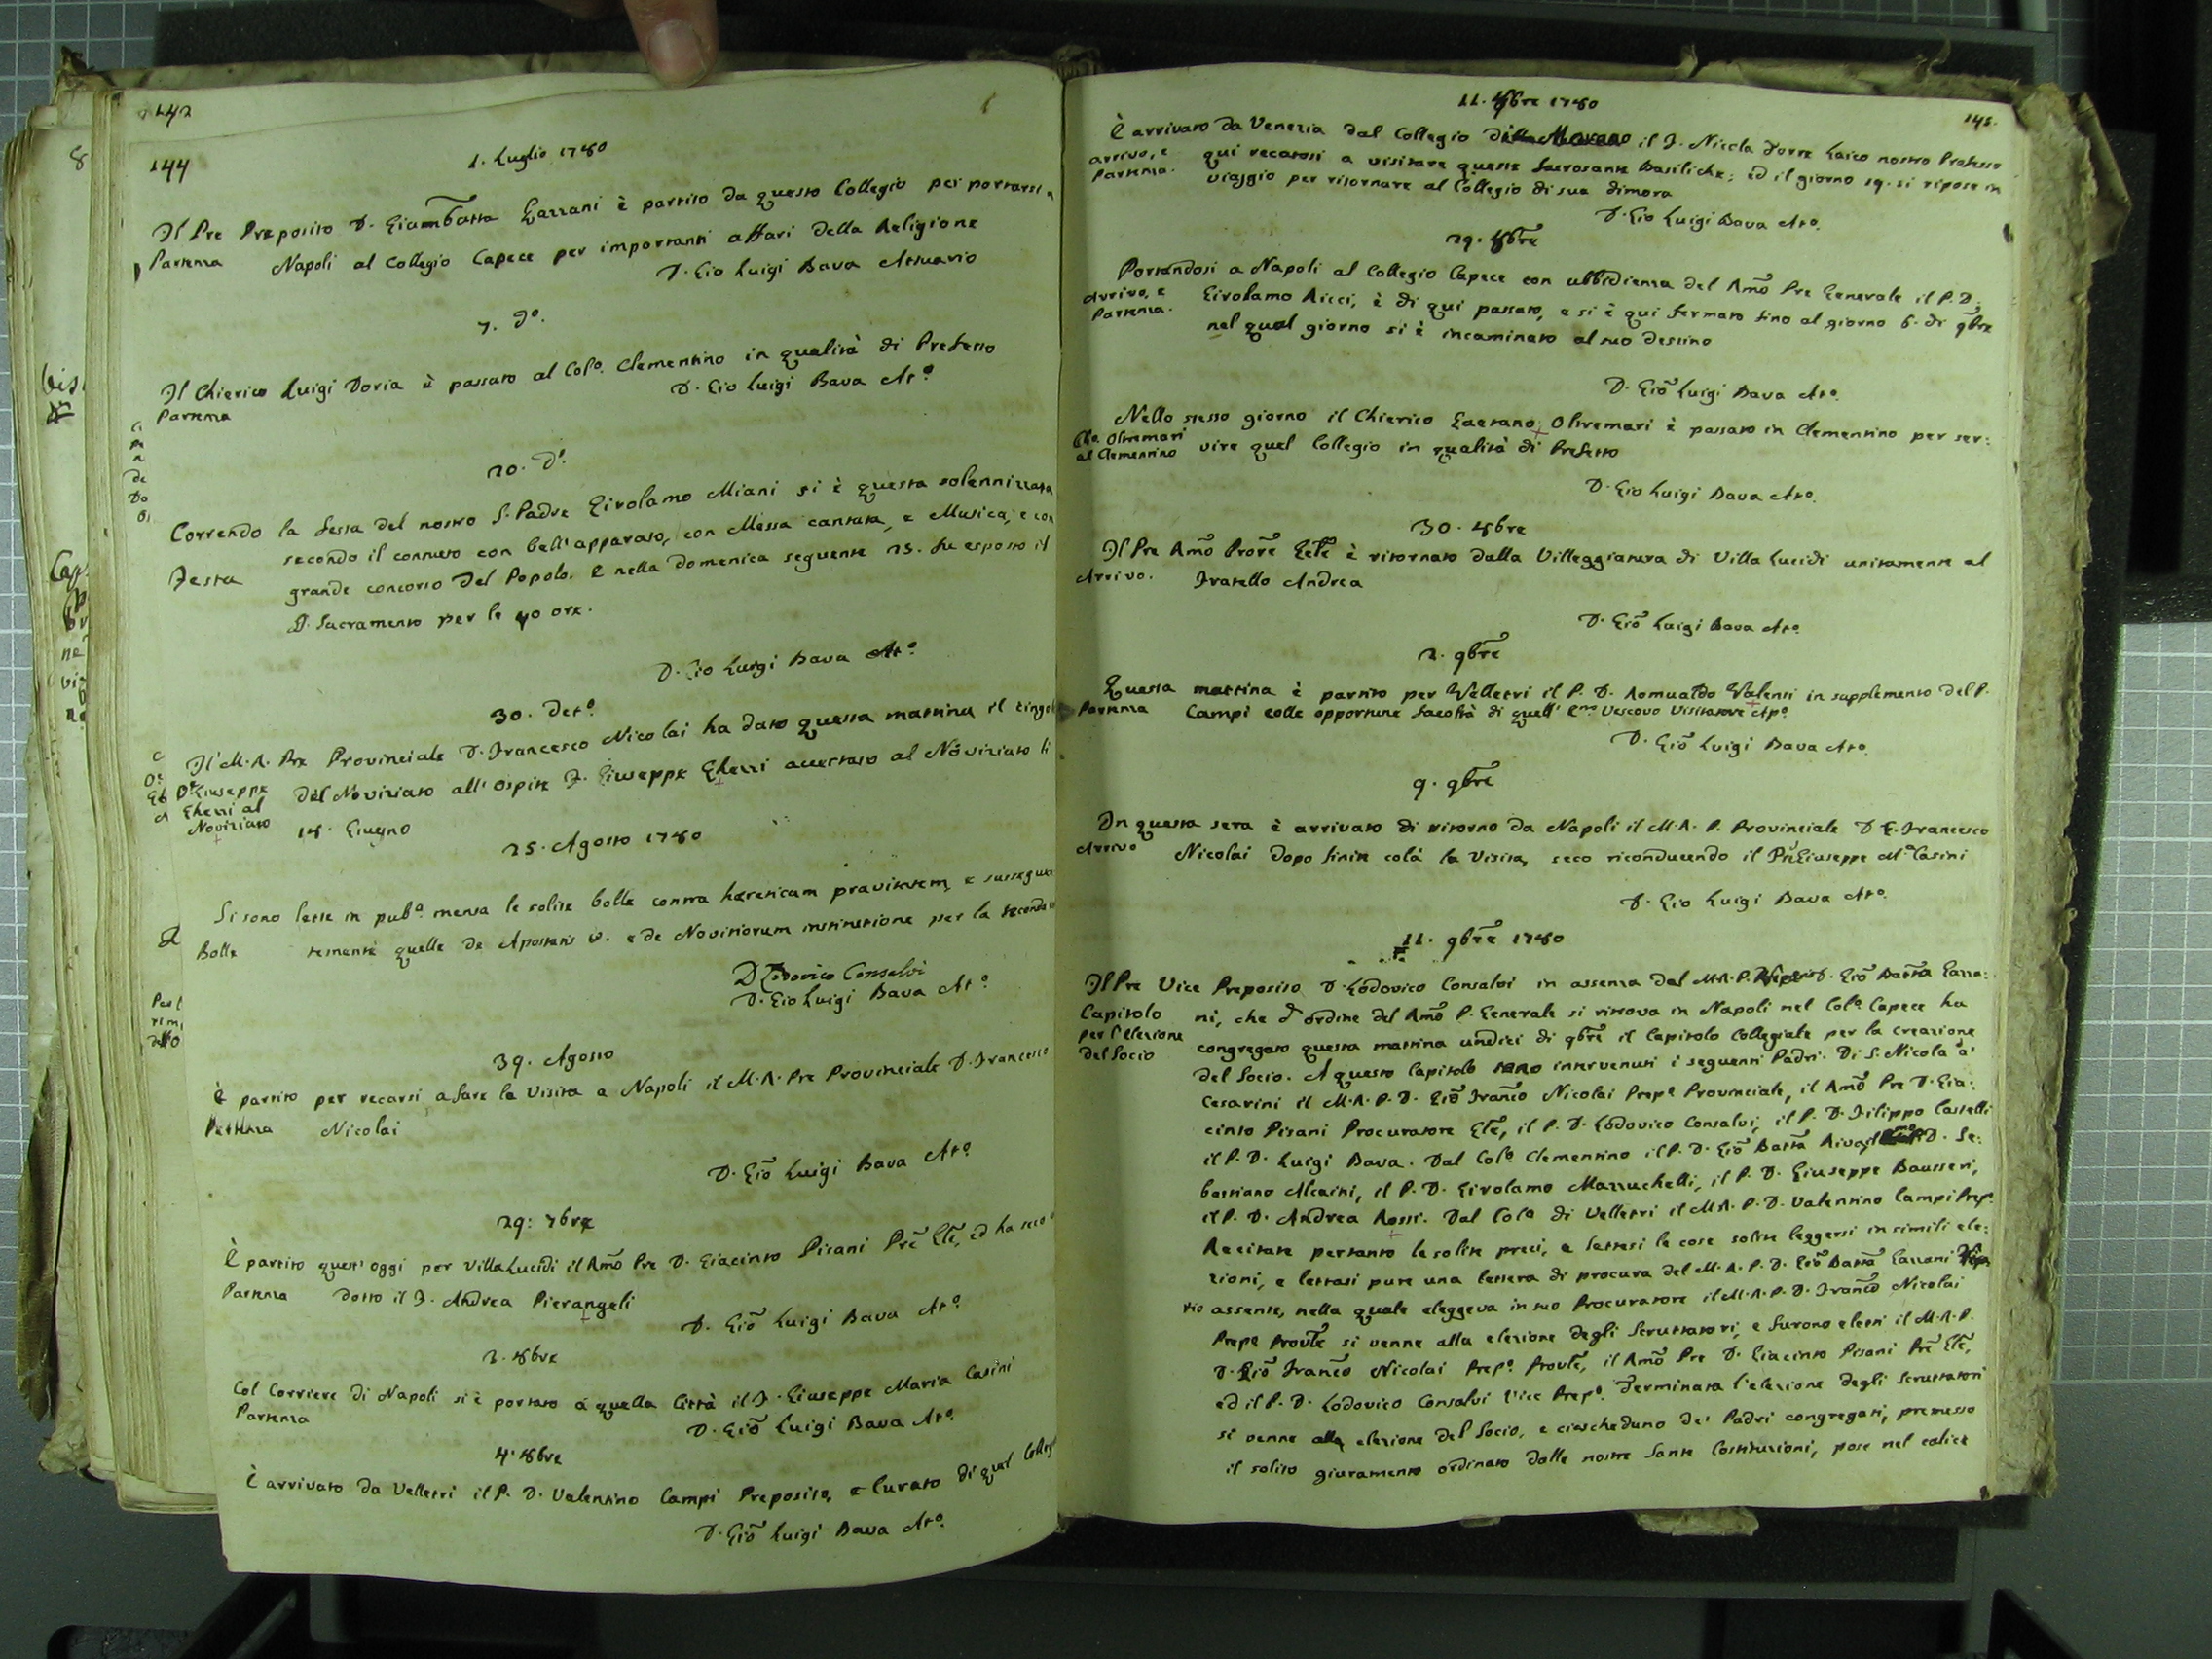 142
144
1. Luglio 1780
Il Pre Preposito D. Giambatta Gazzani è partito da questo Collegio per portarsi a
Partenza Napoli al Collegio Capece per importanti affari della Religione
D. Gio Luigi Bava Attuario
7. do.
Il Chierico Luigi Doria è passato al Colo. Clementino in qualità di Prefetto
Partenza
D. Gio Luigi Bava Atto
20. do.
Correndo la festa del nostro S. Padre Girolamo Miani si è questa solennizzata
secondo il consueto con bell'apparato, con Messa cantata, e Musica, e con
Festa grande concorso del Popolo. E nella Domenica seguente 25. fu esposto il
S. Sacramento per le 40 ore.
D. Gio Luigi Bava Atto
30. Detto
Il M. R. Pre Provinciale D. Francesco Nicolai ha dato questa mattina il cingolo
Dr Giuseppe Ghezzi al Noviziato
del Noviziato all'Ospite F. Giuseppe Ghezzi accettato al Noviziato li
18. Giugno
25. Agosto 1780
Si sono lette in pubo. mensa le solite bolle contra hæreticam pravitatem, e sussegue
Bolle temente quelle de Apostatis &. e de Novitiorum institutione per la seconda
D Lodovico Consalvi
D. Gio Luigi Bava Atto.
39. Agosto
È partito per recarsi a fare la Visita a Napoli il M. R. Pre Provinciale D. Francesco
Partenza Nicolai
D. Gio Luigi Bava Atto
29: 7bre
È partito quest'oggi per Villa Lucidi il Rmo Pre D. Giacinto Pisani Pre Gle, ed ha seco
Partenza dotto il F. Andrea Pierangeli
D. Gio Luigi Bava Atto.
3. 8bre
Col Corriere di Napoli si è portato a quella Città il F. Giuseppe Maria Casini
Partenza
D. Gio Luigi Bava Atto.
4. 8bre
È arrivato da Velletri il P. D. Valentino Campi Preposito, e Curato di quel Colleg
D. Gio Luigi Bava Atto.
11. 8bre 1780
145.
È arrivato da Venezia dal Collegio il F. Nicola Torre Laico nostro Professo
arrivo, e Partenza. qui recatosi a visitare queste Sacrosante Basiliche; ed il giorno 19. si ripose in
viaggio per ritornare al Collegio di sua dimora
D. Gio Luigi Bava Atto.
29. 8bre
Portandosi a Napoli al Collegio Capece con ubbidienza del Rmo Pre Generale il P. D.
Arrivo, e Partenza. Girolamo Ricci, è di qui passato, e si è qui fermato fino al giorno 6. di 9bre
nel qual giorno si è incaminato al suo destino
D. Gio Luigi Bava Atto.
Nello stesso giorno il Chierico Gaetano Oltremari è passato in Clementino per ser:
Cho. Oltremari al Clementino vire quel Collegio in qualità di Prefetto
D. Gio Luigi Bava Atto.
30. 8bre
Il Pre Rmo Prore Gele è ritornato dalla Villeggiatura di Villa Lucidi unitamente al
Arrivo. Fratello Andrea
D. Gio Luigi Bava Atto.
2. 9bre
Questa mattina è partito per Velletri il P. D. Romualdo Valenti in supplemento del P.
Partenza Campi colle opportune facoltà di quell' Emo Vescovo Visitatore Apo.
D. Gio Luigi Bava Atto.
9. 9bre
In questa sera è arrivato di ritorno da Napoli il M. R. P. Provinciale D G. Francesco
Arrivo Nicolai dopo finita colà la Visita, seco riconducendo il Giuseppe Ma. Casini
D. Gio Luigi Bava Atto.
11. 9bre 1780
Il Pre Vice Preposito D. Lodovico Consalvi in assenza del M. R. P. D. Gio Batta Gazza:
Capitolo per l'elezione del Socio
ni, che d'ordine del Rmo P. Generale si ritrova in Napoli nel Colo Capece ha
congregato questa mattina undici di 9bre il Capitolo Collegiale per la creazione
del Socio. A questo Capitolo sono intervenuti i seguenti Padri. Di S. Nicola a'
Cesarini il M. R. P. D. Gio Franco Nicolai Prepo Provinciale, il Rmo Pre D. Gia:
cinto Pisani Procuratore Gle, il P. D. Lodovico Consalvi, il P. D. Filippo Castelli
il P. D. Luigi Bava. Dal Colo Clementino il P. D. Gio Batta Riva, D. Se:
bastiano Alcaini, il P. D. Girolamo Mazzuchelli, il P. D. Giuseppe Bausseri,
il P. D. Andrea Rossi. Dal Colo di Velletri il M. R. P. D. Valentino Campi Prepo.
Recitate pertanto le solite preci, e lettesi le cose solite leggersi in simili ele:
zioni, e lettasi pure una lettera di procura del M. R. P. D. Gio Batta Gazzani Prepo
sito assente, nella quale eleggeva in suo Procuratore il M. R. P. D. Franco Nicolai
Prepo Provle si venne alla elezione degli Scrutatori, e furono eletti il M. R. P.
D. Gio Franco Nicolai Prepo. Provle, il Rmo Pre D. Giacinto Pisani Pre Gle,
ed il P. D. Lodovico Consalvi Vice Prepo. Terminata l'elezione degli Scrutatori
si venne alla elezione del Socio, e ciascheduno de' Padri congregati, premesso
il solito giuramento ordinato dalle nostre Sante Costituzioni, pose nel calice